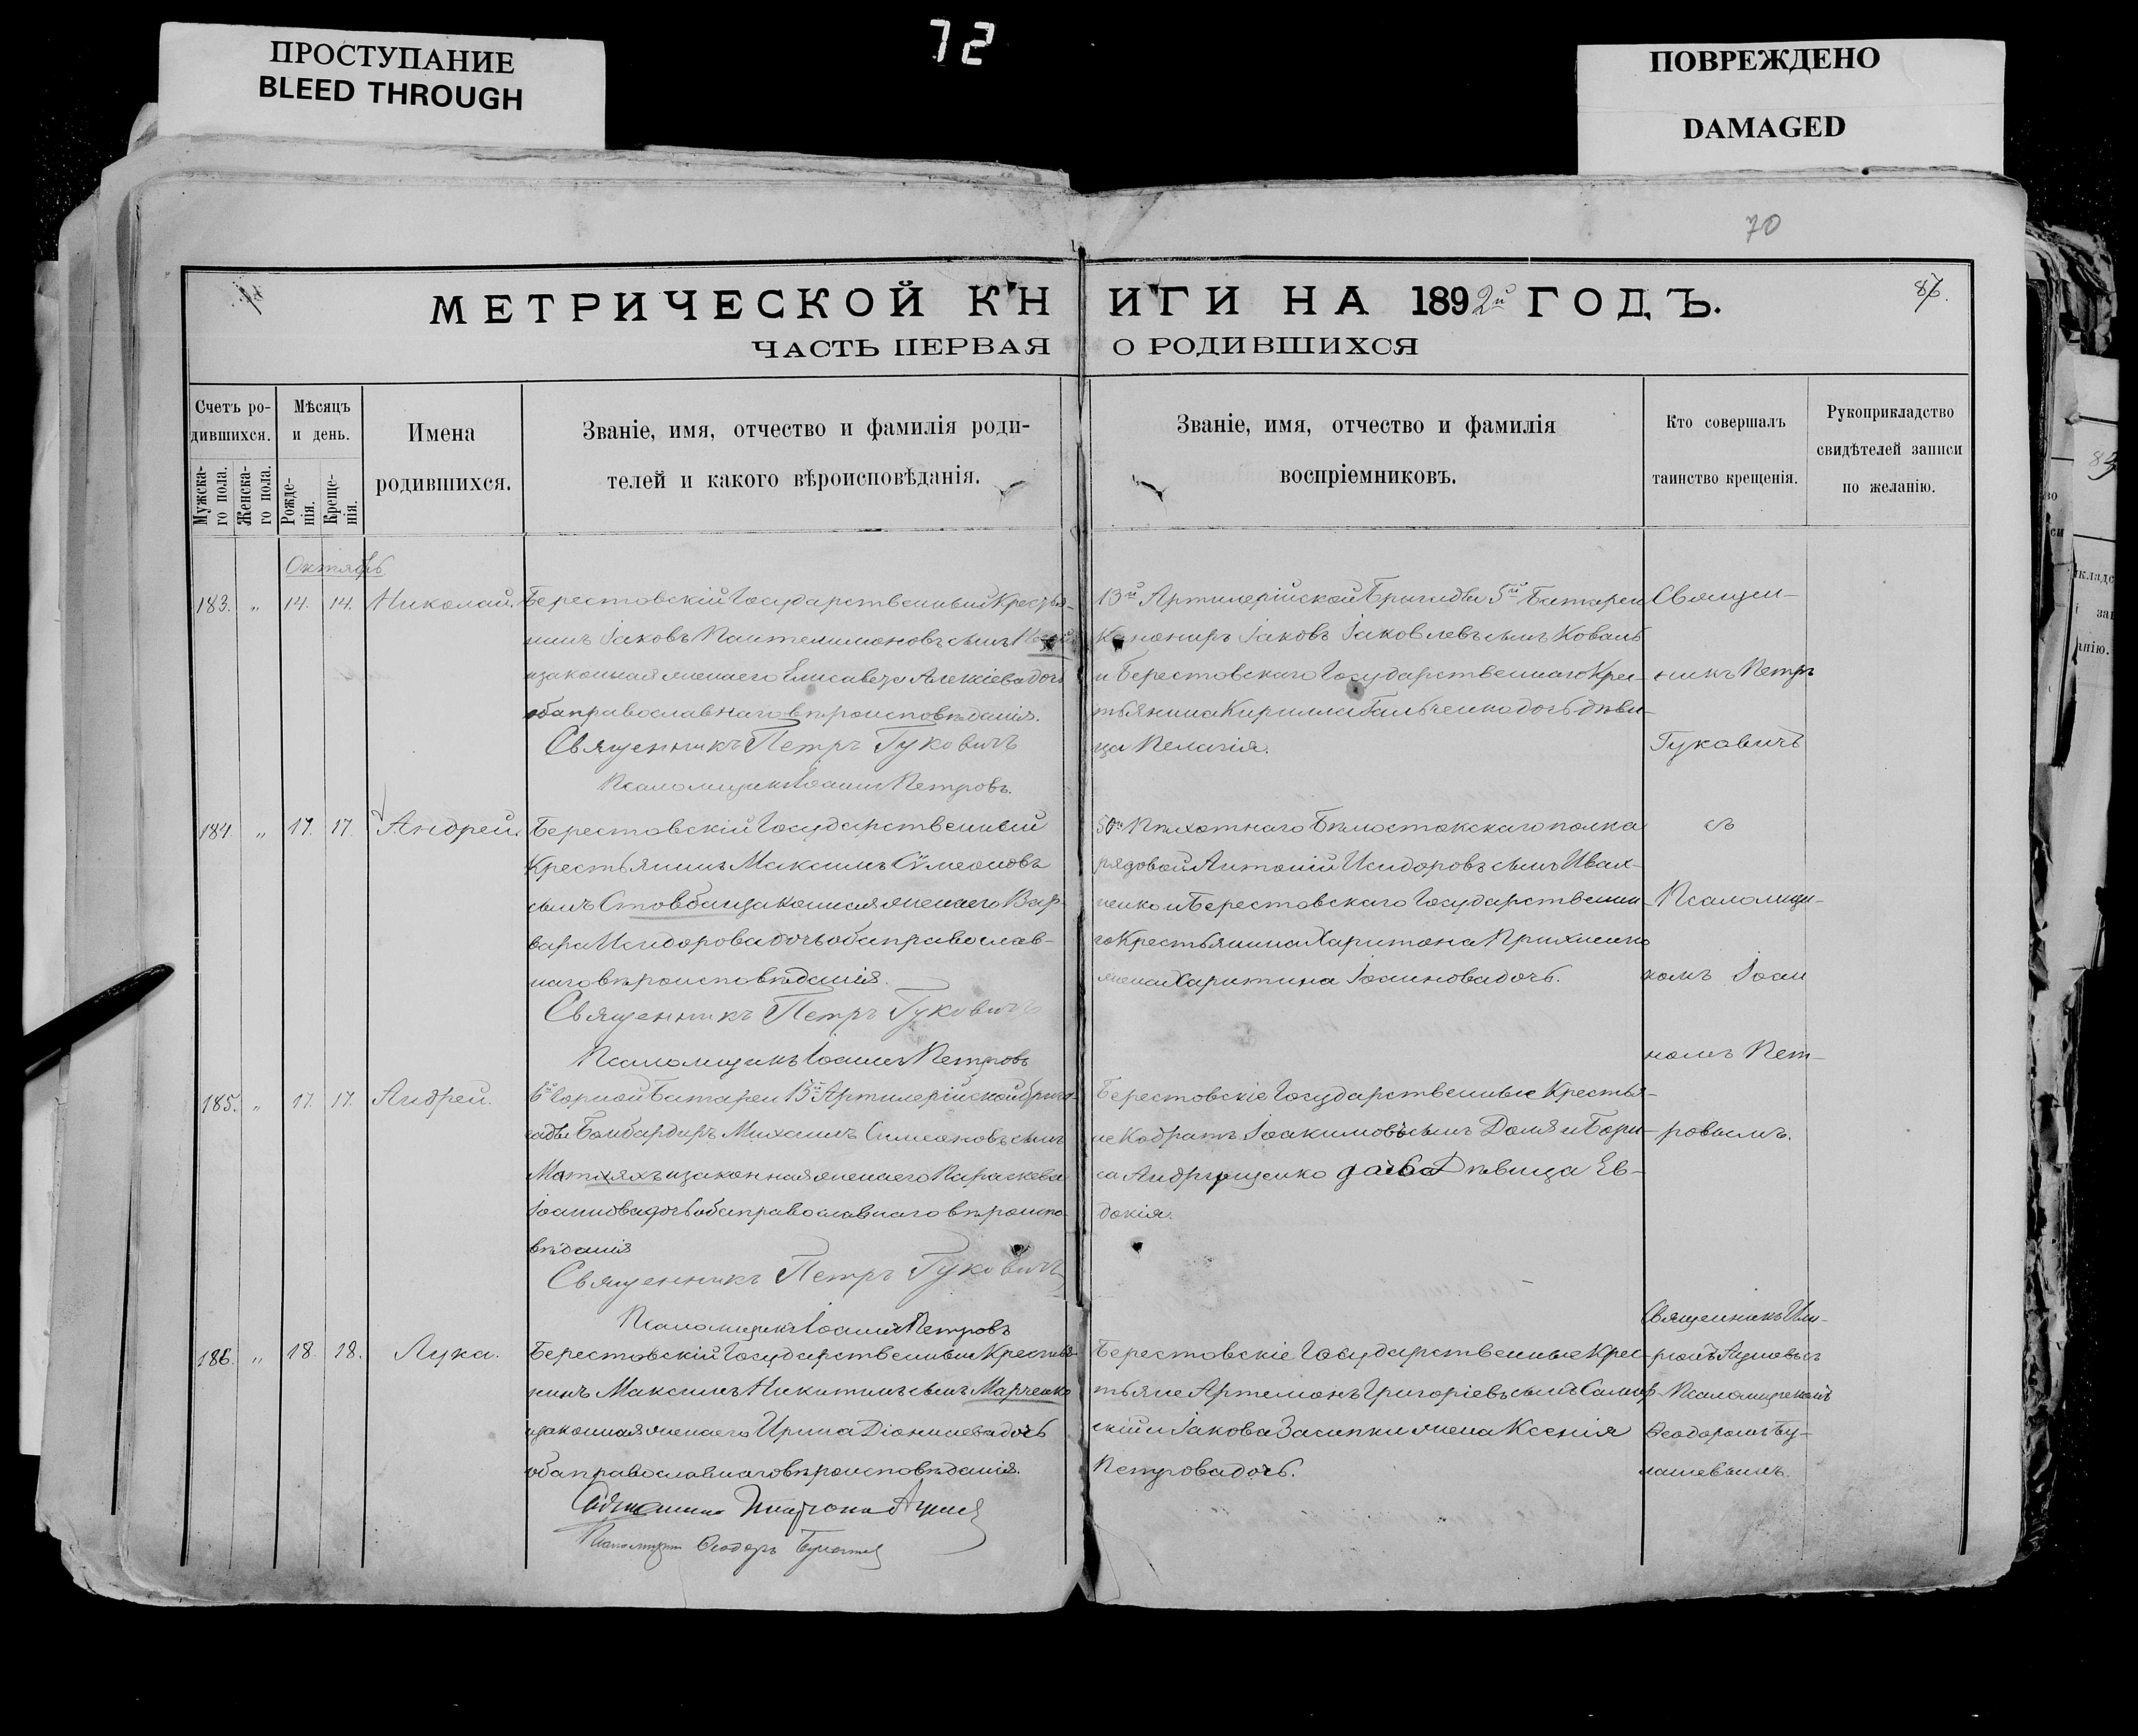 ПРОСТУПАНИЕ
BLEED THROUGH
72
ПОВРЕЖДЕНО
DAMAGED
70
МЕТРИЧЕСКОЙ КНИГИ НА 1892й ГОДЪ.
ЧАСТЬ ПЕРВАЯ О РОДИВШИХСЯ
Счетъ ро-
дившихся.
Мужска-
го пола.
Женска-
го пола.
Мѣсяцъ
и день.
Рожде-
нія.
Креще-
нія.
Имена
родившихся.
Званіе, имя, отчество и фамилія роди-
телей и какого вѣроисповѣданія.
Званіе, имя, отчество и фамилія
воспріемниковъ.
Кто совершалъ
таинство крещенія.
Рукоприкладство
свидѣтелей записи
по желанію.
Октябрь
183. " 14. 14. Николай.
Берестовскій Государственный Крестья-
нинъ Іаковъ Пантелимоновъ сынъ
и законная жена его Елисавета Алексіева дочь
оба православнаго вѣроисповѣданія.
Священникъ Петръ Гуковичъ
Псаломщикъ Іоаннъ Петровъ.
13й Артилерійской Бригады 5й Батареи
Канониръ Іаковъ Іаковлевъ сынъ Коваль
и Берестовскаго Государственнаго Крес-
тьянина Кирилла Гальченко дочь дѣви-
ца Пелагія.
Священ-
никъ Петръ
Гуковичъ
184. " 17. 17. Андрей.
Берестовскій Государственный
Крестьянинъ Максимъ Сѵмеоновъ
сынъ Стовба и законная жена его Вар-
вара Исидорова дочь оба православ-
наго вѣроисповѣданія.
Священникъ Петръ Гуковичъ
Псаломщикъ Іоаннъ Петровъ
50й Пѣхотнаго Бѣлостокскаго полка
рядовой Антоній Исидоровъ сынъ Ивах-
ненко и Берестовскаго Государственна-
го Крестьянина Харитона
жена Харитина Іоаннова дочь.
съ
Псаломщи-
комъ Іоан
номъ Пет-
185. " 17. 17. Андрей.
6й Горной Батареи 15й Артилерійской брига-
гады Бомбардиръ Михаилъ Симеоновъ сынъ
Матяхъ и законная жена его Параскева
Іоаннова дочь оба православнаго вѣроиспо-
вѣданія
Священникъ Петръ Гуковичъ
Псаломщикъ Іоаннъ Петровъ
Берестовскіе Государственные Крестья-
не Кодратъ Іоакимовъ сынъ Доля и Бори-
са Андрющенко дочь Дѣвица Ев-
докія.
ровымъ.
186. " 18. 18. Лука.
Берестовскій Государственный Крестья-
нинъ Максимъ Никитинъ сынъ Марченко
и законная жена его Ирина Діонисіева дочь
оба православнаго вѣроисповѣданія.
Псаломщикъ Ѳеодоръ
Берестовскіе Государственные Крес-
тьяне Артемонъ Григоріевъ сынъ
скій и Іакова Засипки жена Ксенія
Петрова дочь.
Священникъ
Псаломщикомъ
Ѳеодоромъ Бу-